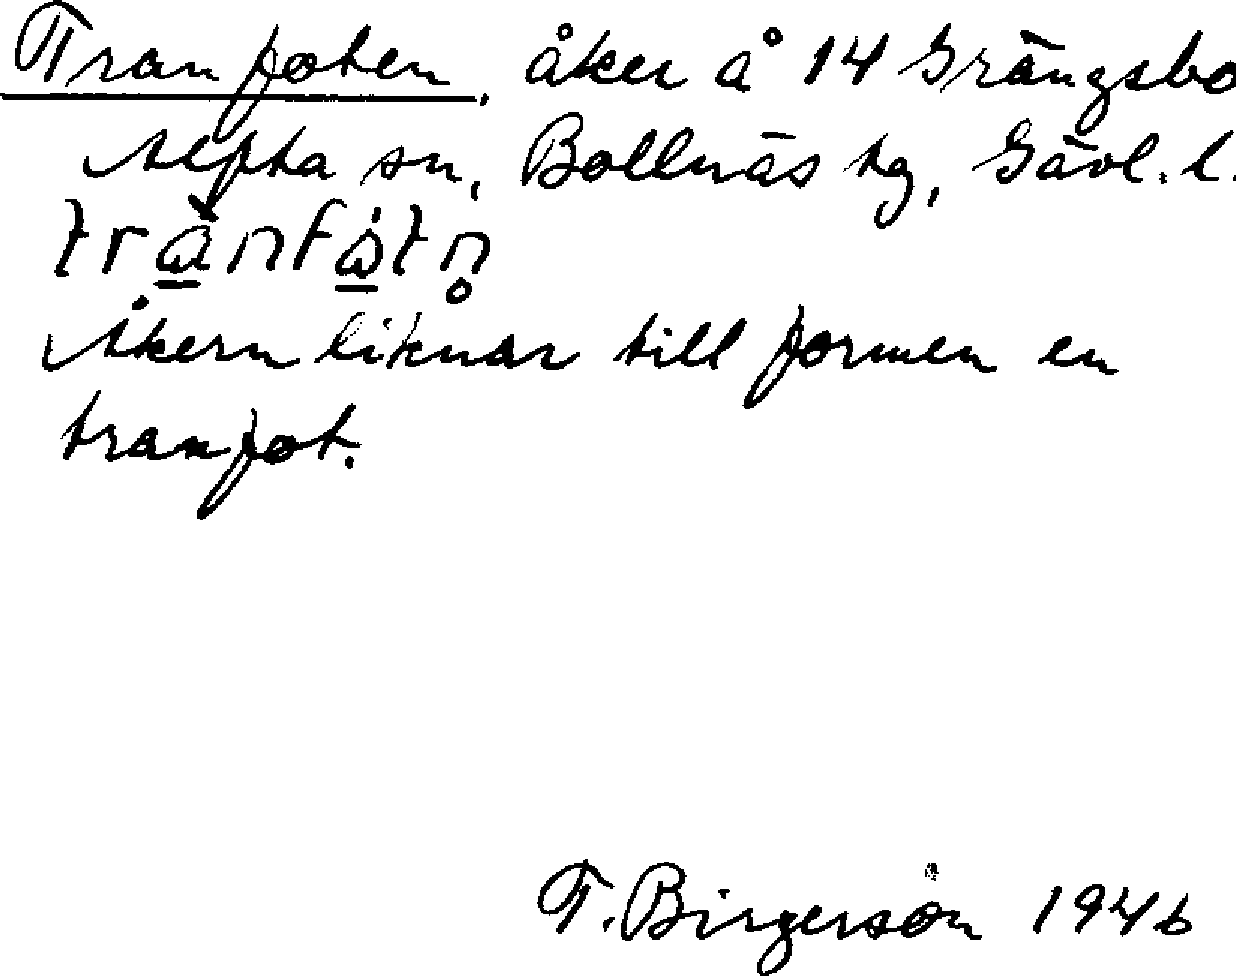 Tranfoten, åker å 14 Grängsbo
Alfta sn, Bollnäs tg, Gävl. l.
Åkern liknar till formen en
tranfot.
T. Birgerson 1946